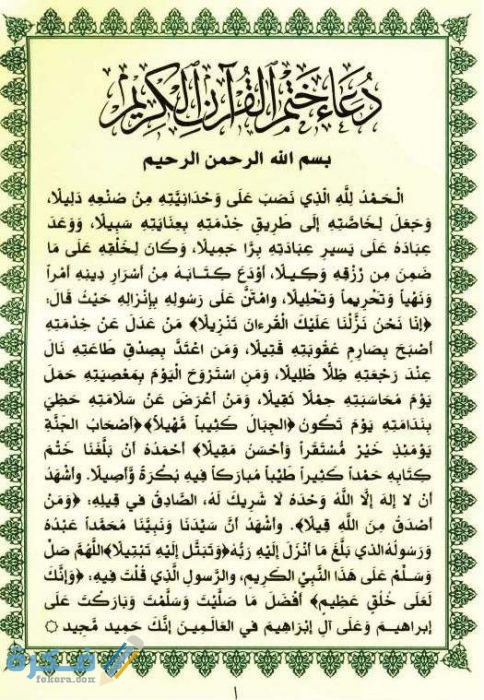 دُعَاءُ خَتْمِ الْقُرْآنِ الْكَرِيمِ
بسم الله الرحمن الرحيم
الْحَمْدُ لِلَّهِ الَّذِي نَصَبَ عَلَى وَحْدَانِيَّتِهِ مِنْ صُنْعِهِ دَلِيلًا،
وَجَعَلَ لِخَاصَّتِهِ إِلَى طَرِيقِ خِدْمَتِهِ بِعِنَايَتِهِ سَبِيلًا، وَوَعَدَ
عِبَادَهُ عَلَى يَسِيرِ عِبَادَتِهِ بِرًّا جَمِيلًا، وَكَانَ لِخَلْقِهِ عَلَى مَا
ضَمِنَ مِن رِزْقِهِ وَكِيلًا، أَوْدَعَ كِتَابَهُ مِنْ أَسْرَارِ دِينِهِ أَمْراً
وَنَهْياً وَتَحْرِيماً وَتَحْلِيلًا، وامْتَنَّ عَلَى رَسُولِهِ بِإِنْزَالِهِ حَيْثُ قَالَ:
﴿إِنَّا نَحْنُ نَزَّلْنَا عَلَيْكَ الْقُرْءانَ تَنْزِيلًا﴾ مَنْ عَدَلَ عَنْ خِدْمَتِهِ
أَصْبَحَ بِصَارِمِ عُقُوبَتِهِ قَتِيلًا، وَمَن اعْتَدَّ بِصِدْقِ طَاعَتِهِ نَالَ
عِنْدَ رَجْعَتِهِ ظِلًّا ظَلِيلًا، وَمَنِ اسْتَرْوَحَ الْيَوْمَ بِمَعْصِيَتِهِ حَمَلَ
يَوْمَ مُحَاسَبَتِهِ حِمْلًا ثَقِيلًا، وَمَنْ أَعْرَضَ عَنْ سَلَامَتِهِ حَظِيَ
بِنَدَامَتِهِ يَوْمَ تَكُونُ ﴿الجِبَالُ كَثِيباً مَّهِيلاً﴾ ﴿أَصْحَابُ الجَنَّةِ
يَوْمَئِذٍ خَيْرٌ مُسْتَقَراًّ وَأَحْسَنُ مَقِيلًا﴾ أَحْمَدُهُ أَنْ بَلَّغَنَا خَتْمَ
كِتَابِهِ حَمْداً كَثِيراً طَيِّباً مُبَارَكاً فِيهِ بُكْرَةً وَأَصِيلًا. وأَشْهَدُ
أَنْ لا إلهَ إلَّا اللَّهُ وَحْدَهُ لا شَرِيكَ لَهُ، الصَّادِقُ في قِيلِهِ: ﴿وَمَنْ
أَصْدَقُ مِنَ اللَّهِ قِيلًا﴾. وأَشْهَدُ أنَّ سَيِّدَنَا وَنَبِيَّنَا مُحَمَّداً عَبْدُهُ
وَرَسُولُهُ الذي بَلَّغَ مَا أُنْزِلَ إلَيْهِ رَبُّهُ ﴿وَتَبَتَّل إلَيْهِ تَبْتِيلًا﴾ اللَّهُمَّ صَلِّ
وَسَلِّمْ عَلَى هَذَا النَّبِيِّ الكَرِيمِ، والرَّسولِ الَّذِي قُلْتَ فِيهِ: ﴿وَإنَّكَ
لَعَلَى خُلُقٍ عَظِيمٍ﴾ أَفْضَلَ مَا صَلَّيْتَ وَسَلَّمْتَ وَبَارَكْتَ عَلَى
إبراهيمَ وَعَلَى آلِ إبْرَاهِيمَ في العَالَمِينَ إنَّكَ حَمِيدٌ مَجِيدٌ ۞
فكرة
fokera.com
١